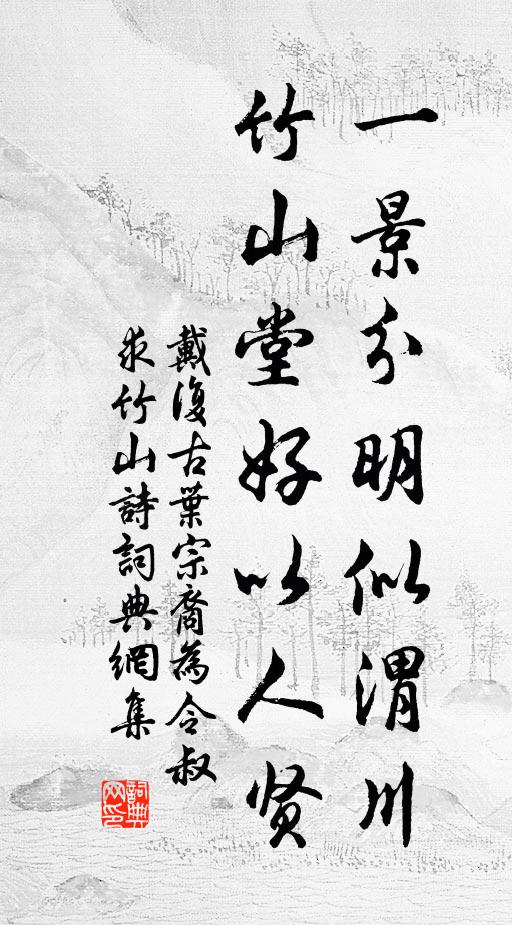 一景分明似渭川
竹山堂好以人贤
戴復古葉宗裔為令叔
求竹山詩詞典網集
詞典
网印